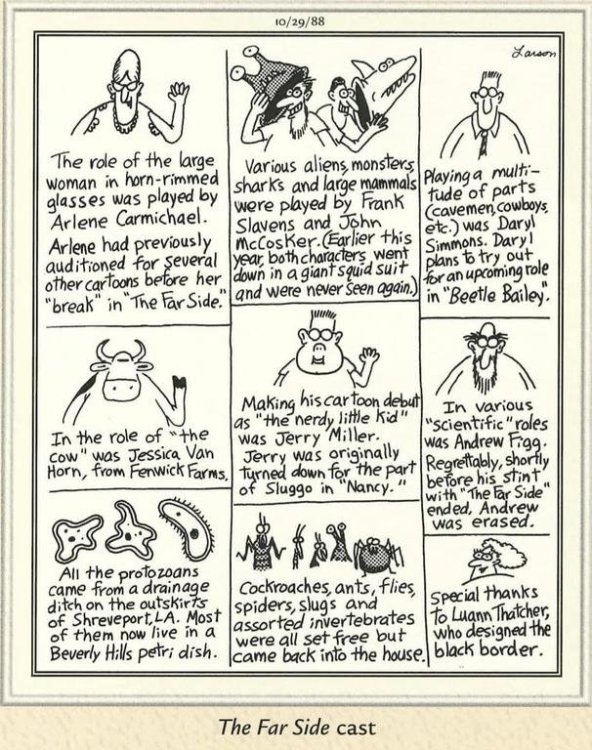 10/29/88
Larson
The role of the large
woman in horn-rimmed
glasses was played by
Arlene Carmichael.
Arlene had previously
auditioned for several
other cartoons before her
"break" in "The Far Side."
Various aliens, monsters,
sharks and large mammals
were played by Frank
Slavens and John
McCosker. (Earlier this
year, both characters went
down in a giant squid suit
and were never seen again.)
Playing a multi-
tude of parts
(cavemen, cowboys,
etc.) was Daryl
Simmons. Daryl
plans to try out
for an upcoming role
in "Beetle Bailey".
In the role of "the
cow" was Jessica Van
Horn, from Fenwick Farms.
Making his cartoon debut
as "the nerdy little kid"
was Jerry Miller.
Jerry was originally
turned down for the part
of Sluggo in "Nancy."
In various
"scientific" roles
was Andrew Figg.
Regrettably, shortly
before his stint
with "The Far Side"
ended, Andrew
was erased.
All the protozoans
came from a drainage
ditch on the outskirts
of Shreveport, LA. Most
of them now live in a
Beverly Hills petri dish.
Cockroaches, ants, flies,
spiders, slugs and
assorted invertebrates
were all set free but
came back into the house.
Special thanks
to Luann Thatcher,
who designed the
black border.
The Far Side cast